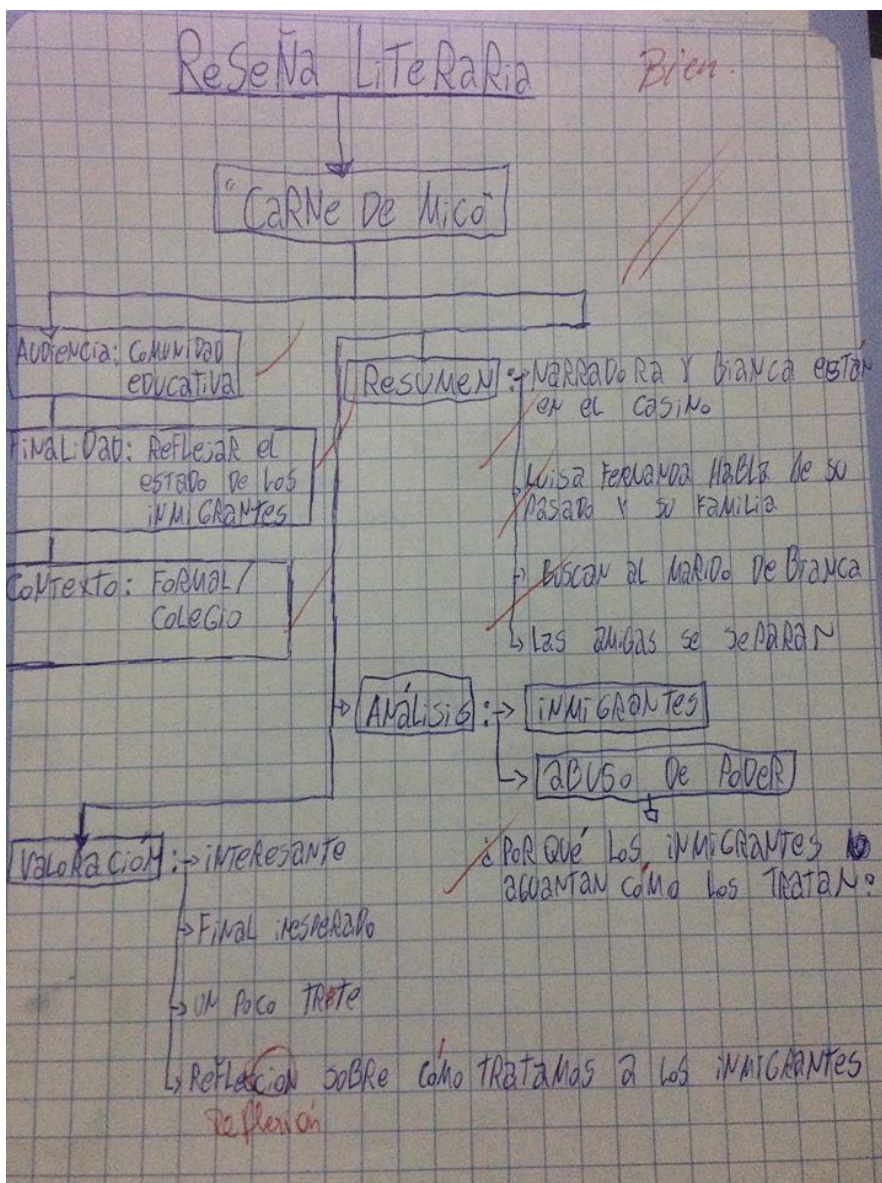 ReSeÑa LiTeRaRia
Bien.
"CaRNe De Mico"
AUDieNcia: CoMUNiDaD
eDUcaTiVa
FiNaLiDaD: ReFLeJaR eL
esTaDo De Los
iNMiGRaNTes
CoNTexTo: FoRMaL/
CoLeGio
ResUMeN: NaRRaDoRa Y BiaNca esTáN
eN eL casiNo
LUisa FeRNaNDa HaBLa De sU
PasaDo Y sU FaMiLia
BUscaN aL MaRiDo De BiaNca
Las aMiGas se sePaRaN
ANáLisis: iNMiGRaNTes
aBUso De PoDeR
¿PoR QUé Los iNMiGRaNTes
aGUaNTaN cóMo Los TRaTaN?
VaLoRacióN: iNTeResaNTe
FiNaL iNesPeRaDo
UN Poco TRisTe
ReFLecioN soBRe cóMo TRaTaMos a Los iNMiGRaNTes
Reflexión